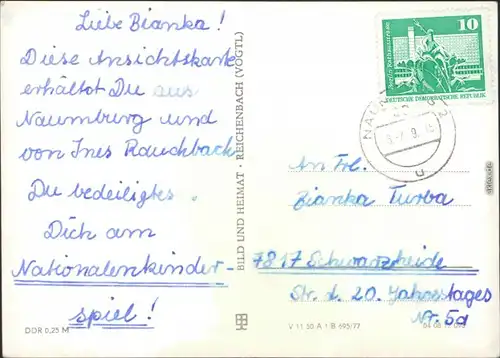 Liebe Bianka!
Diese Ansichtskarte
erhältst Du aus
Naumburg und
von Ines Rauchbach
Du bedeiligtes
Dich am
Nationalenkinder-
spiel!
DDR 0,25 M
BILD UND HEIMAT · REICHENBACH (VOGTL)
10
DEUTSCHE DEMOKRATISCHE REPUBLIK
An Frl.
Bianka Turba
7817 Schwarzheide
Str. d. 20. Jahrestages
Nr. 5a
V 11 50 A 1 B 695/77